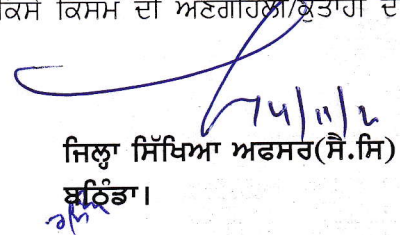 ਕਿਸੇ ਕਿਸਮ ਦੀ ਅਣਗਹਿਲੀ/ਕੁਤਾਹੀ ਦ
ਜਿਲ੍ਹਾ ਸਿੱਖਿਆ ਅਫਸਰ(ਸੈ.ਸਿ)
ਬਠਿੰਡਾ।